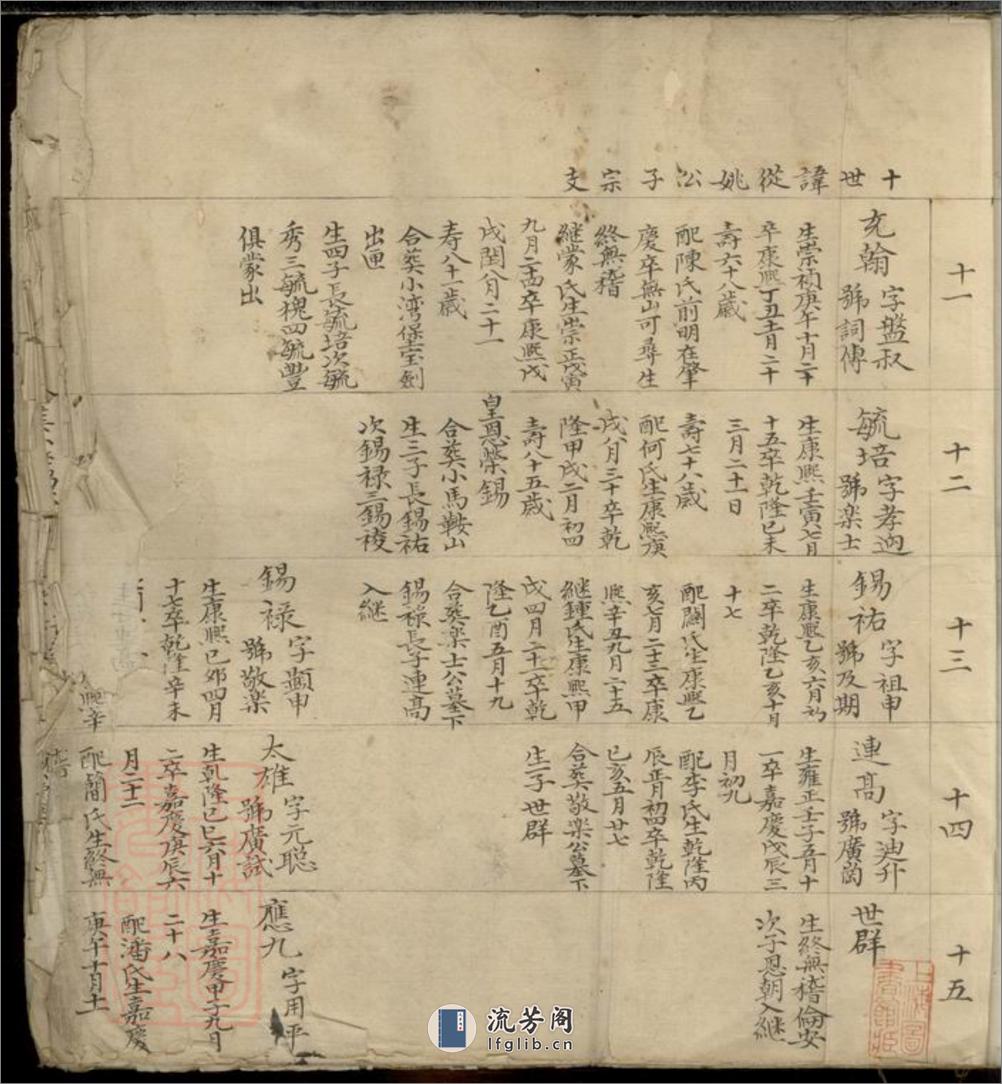 十世諱從姚公子宗支
十一
充翰字盤叔
號詞傅
生崇禎庚午十月二十
卒康熙丁丑十一月二十
壽六十八歲
配陳氏前明在肇
慶卒無山可尋生
終無稽
継蒙氏生崇正戊寅
九月二十四卒康熙戊
戌閏八月二十一
寿八十一歲
合葬小湾堡宝劍
出匣
生四子長毓培次毓
秀三毓槐四毓豐
俱蒙出
十二
毓培字孝迥
號楽士
生康熙壬寅七月
十五卒乾隆己未
三月二十一日
壽七十八歲
配何氏生康熙庚
戌八月三十卒乾
隆甲戌二月初四
壽八十五歲
皇恩榮錫
合葬小馬鞍山
生三子長錫祐
次錫禄三錫祾
十三
錫祐字祖申
號及期
生康熙乙亥六月初
二卒乾隆乙亥十月
十七
配關氏生康熙乙
亥七月二十三卒康
熙辛丑九月二十五
継鍾氏生康熙甲
戌四月二十二卒乾
隆乙酉五月十九
合葬楽士公墓下
錫禄長子連高
入継
錫禄字顯申
號敬楽
生康熙己夘四月
十七卒乾隆辛未
熙辛
十四
連高字廸升
號廣崗
生雍正壬子五月十
一卒嘉慶戊辰三
月初九
配李氏生乾隆丙
辰正月初四卒乾隆
己亥五月廿七
合葬敬楽公墓下
生子世群
太雄字元聪
號廣試
生乾隆己巳六月十
二卒嘉慶庚辰六
月二十二
配簡氏生終無
稽
十五
世群
生終無稽倫安
次子恩朝入継
應九字用平
生嘉慶甲子九月
二十八
配潘氏生嘉慶
庚午十月十
上海圖
書館藏
流芳阁
lfglib.cn